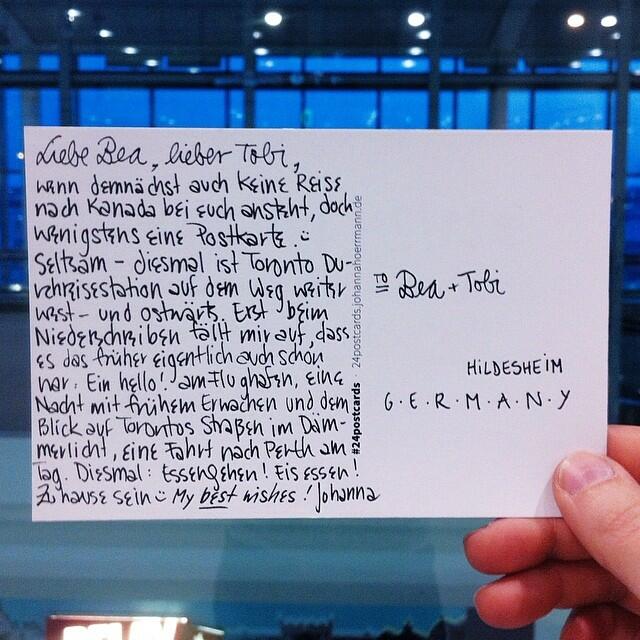 Liebe Bea, lieber Tobi,
wenn demnächst auch keine Reise
nach Kanada bei euch ansteht, doch
wenigstens eine Postkarte. :)
Seltsam - diesmal ist Toronto Du-
rchreisestation auf dem Weg weiter
west- und ostwärts. Erst beim
Niederschreiben fällt mir auf, dass
es das früher eigentlich auch schon
war: Ein hello! am Flughafen, eine
Nacht mit frühem Erwachen und dem
Blick auf Torontos Straßen im Däm-
merlicht, eine Fahrt nach Perth am
Tag. Diesmal: Essengehen! Eis essen!
Zuhause sein :) My best wishes! Johanna
#24postcards · 24postcards.johannahoerrmann.de
TO Bea + Tobi
HILDESHEIM
G·E·R·M·A·N·Y